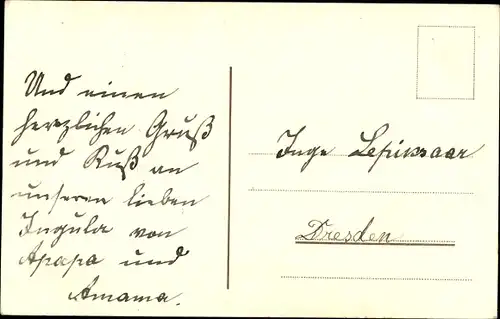 Und einen
herzlichen Gruß
und Kuß an
unseren lieben
Ingula von
Apapa und
Amama.
Inge
Dresden